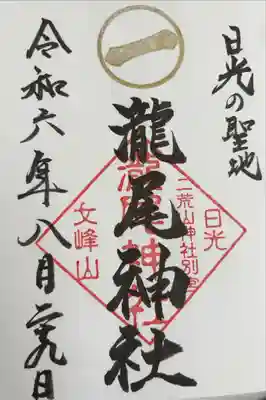 日光の聖地
一
瀧尾神社
日光
二荒山神社別宮
瀧尾神社
文峰山
令和六年八月二十九日